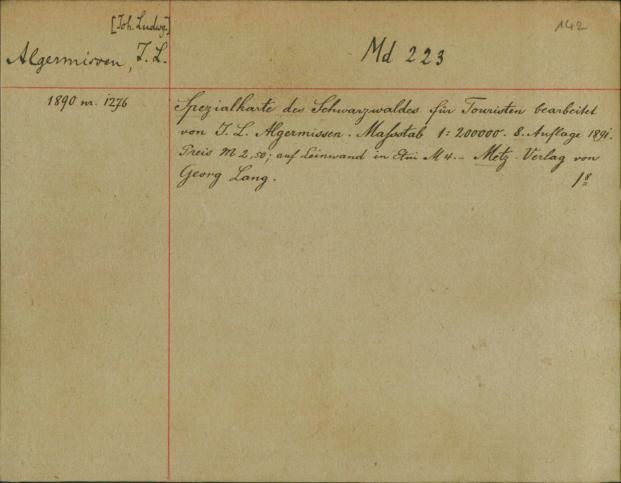 [Joh. Ludwg.]
142
Algermissen, J. L.
Md 223
1890 nr. 1276
Spezialkarte des Schwarzwaldes für Touristen bearbeitet
von J. L. Algermissen. Maſsstab 1:200000. 8. Auflage 1891.
Preis M 2,50; auf Leinwand in Etui M 4.– Metz. Verlag von
Georg Lang.